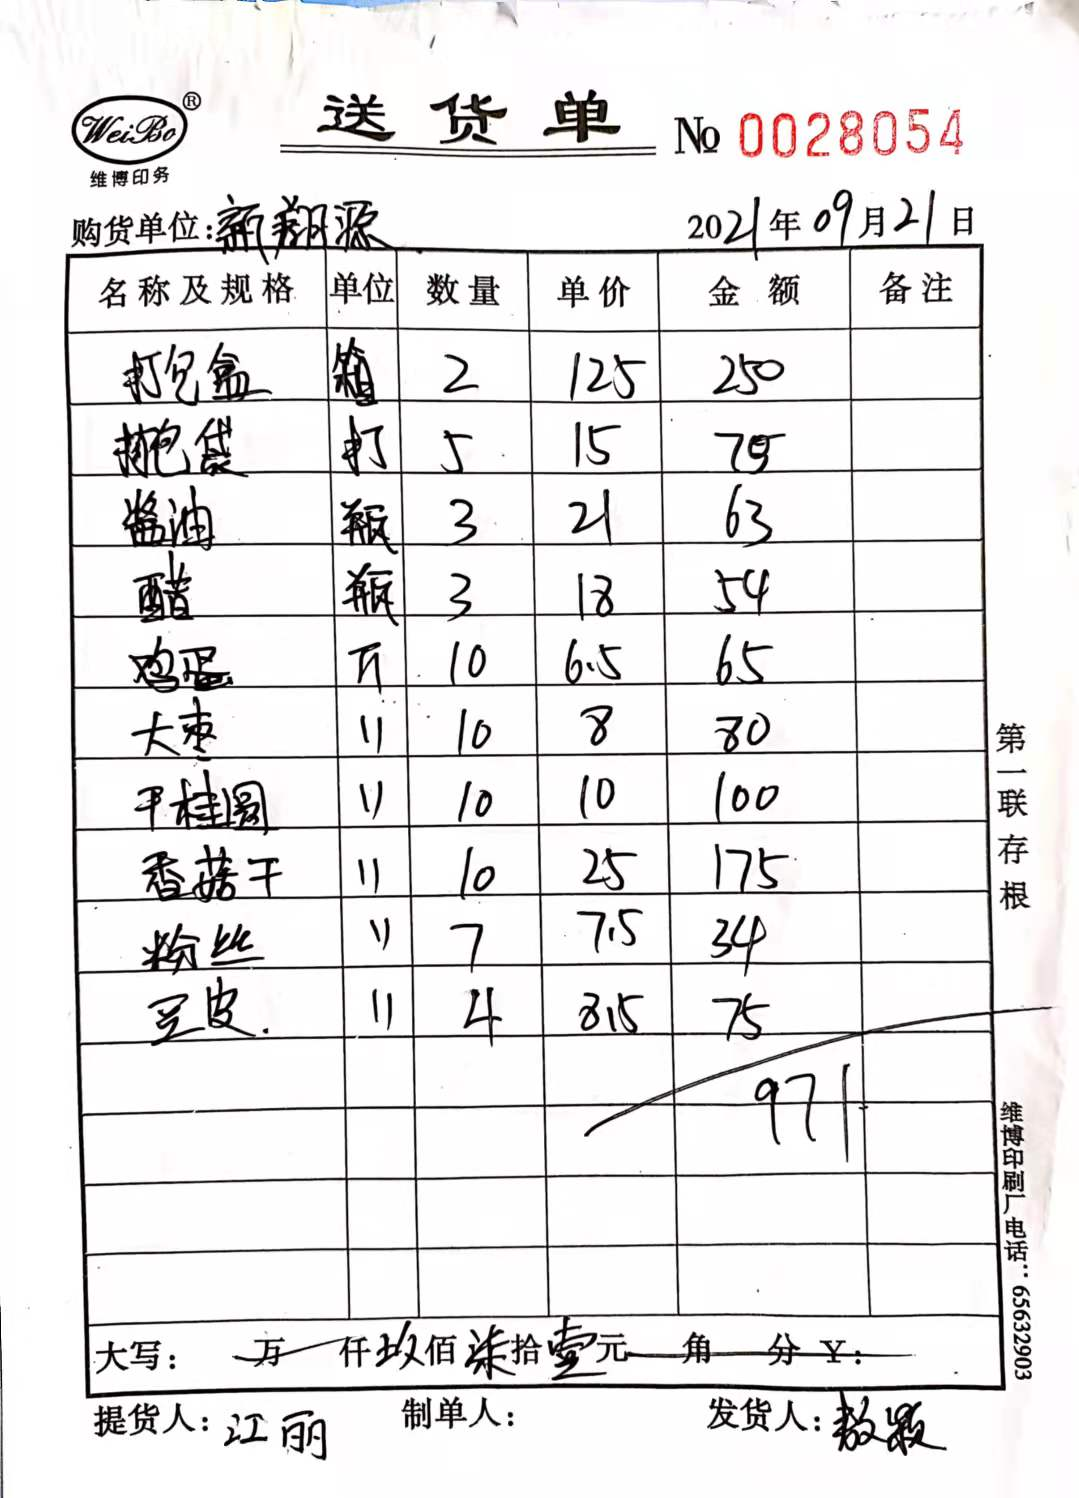 WeiBo ®
维博印务
送货单 № 0028054
购货单位:新翔源 2021年09月21日
名称及规格 单位 数量 单价 金额 备注
打包盒 箱 2 125 250
打包袋 打 5 15 75
酱油 瓶 3 21 63
醋 瓶 3 18 54
鸡蛋 斤 10 6.5 65
大枣 〃 10 8 80
干桂圆 〃 10 10 100
香菇干 〃 10 25 175
粉丝 〃 7 7.5 34
豆皮. 〃 4 8.5 75
971
大写: 万 仟玖佰柒拾壹元 角 分 ¥:
提货人:江丽 制单人: 发货人:敖颖
第一联存根
维博印刷厂电话:65632903